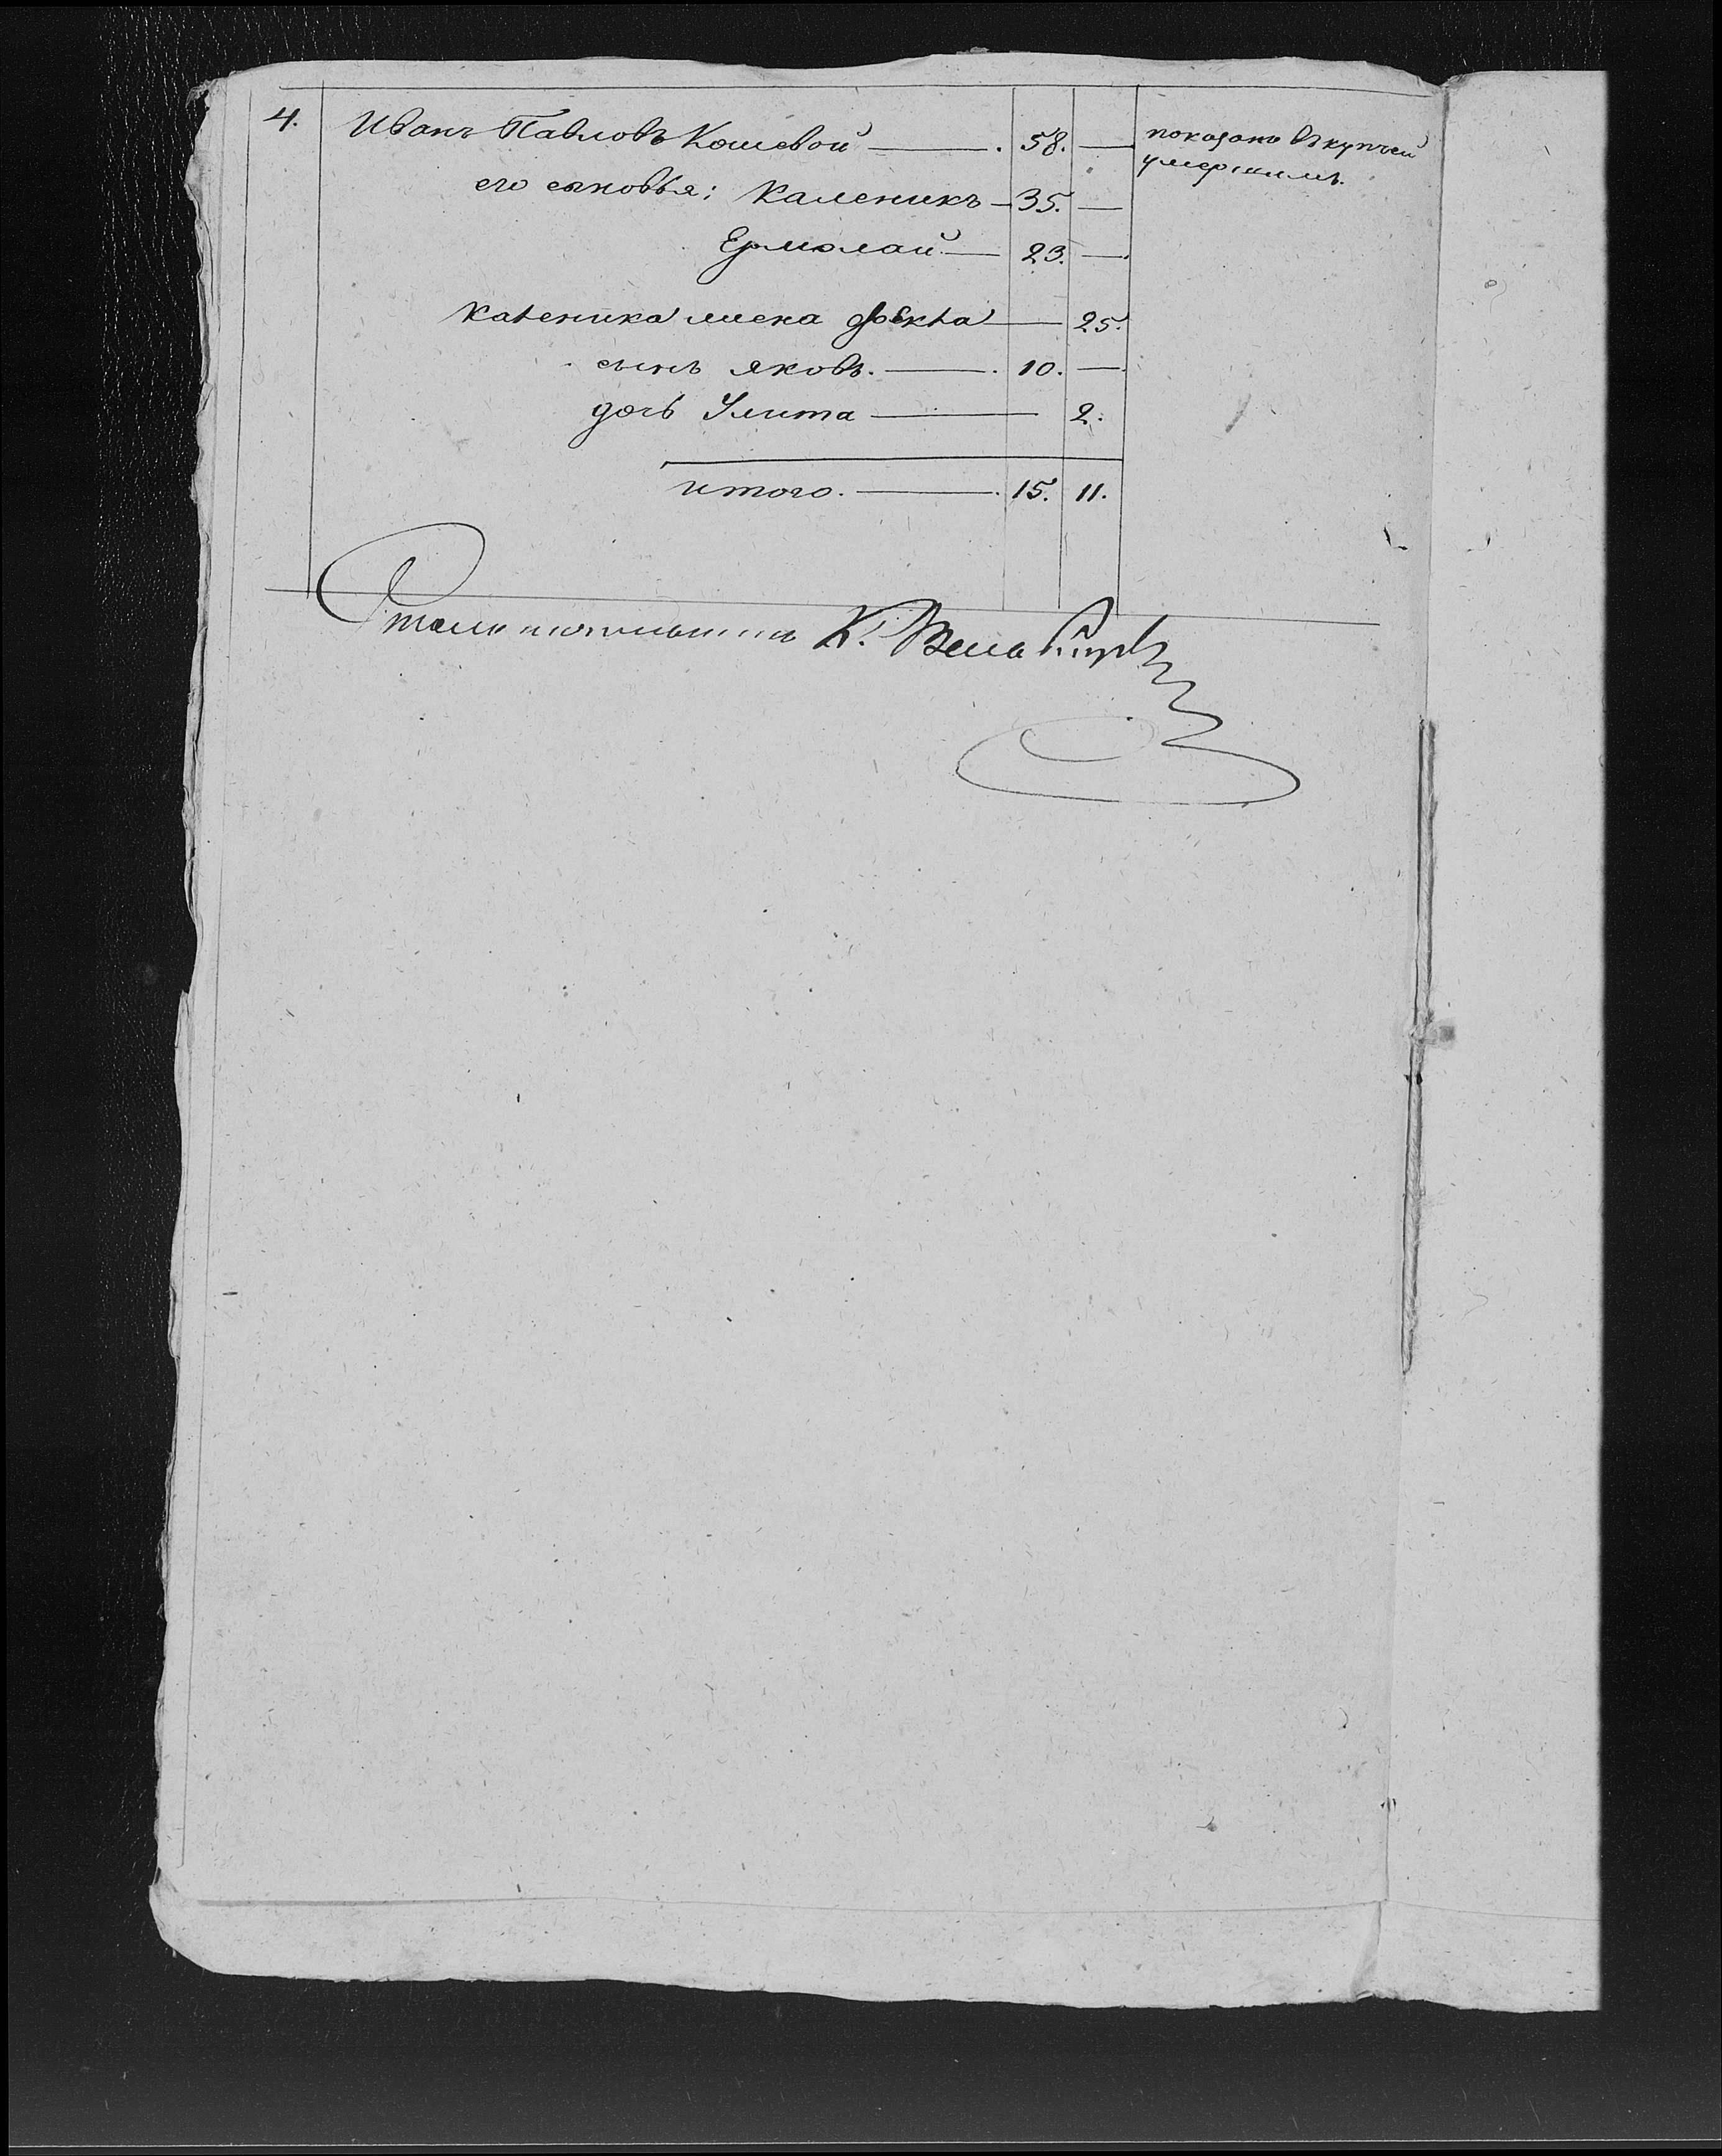 4. Иванъ Павловъ Кошевой — 58. — показанъ въ купчей
умершимъ.
его сыновья: Каленикъ — 35. —
Ермолай — 23. —
Каленика жена Фекла — 25.
сынъ Яковъ. — 10. —
дочь Улита — 2.
итого. — 15. 11.
К.